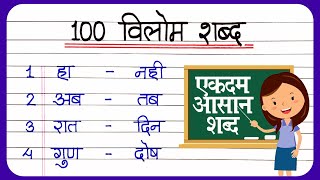 100 विलोम शब्द
1 हा - नही
2 अब - तब
3 रात - दिन
4 गुण - दोष
एकदम
आसान
शब्द